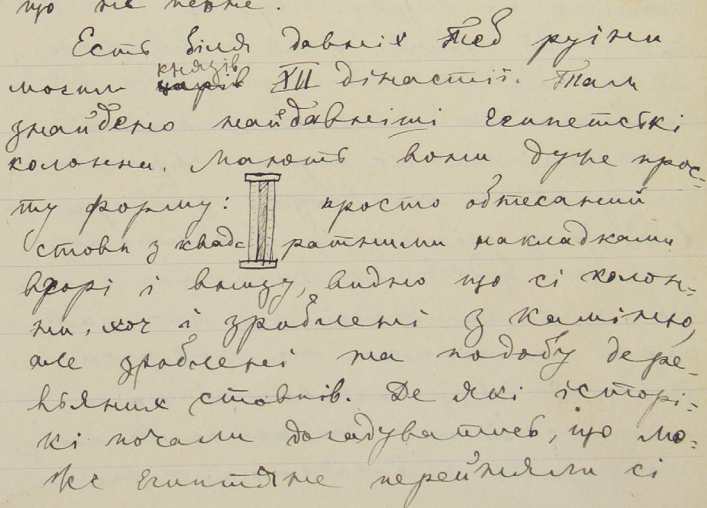 що не певне.
Есть біля давніх Теб руіни
могил князів царів XII дінастії. Там
знайдено найдавніші египетські
колонни. Мають вони дуже прос-
ту форму: просто обтесаний
стовп з квадратними накладками
вгорі і внизу, видно що сі колон-
ни, хоч і зроблені з каміню,
але зроблені на подобу дере-
вьяних стовпів. Де які істори-
кі почали догадуватись, що мо-
же Египтяне перейняли сі